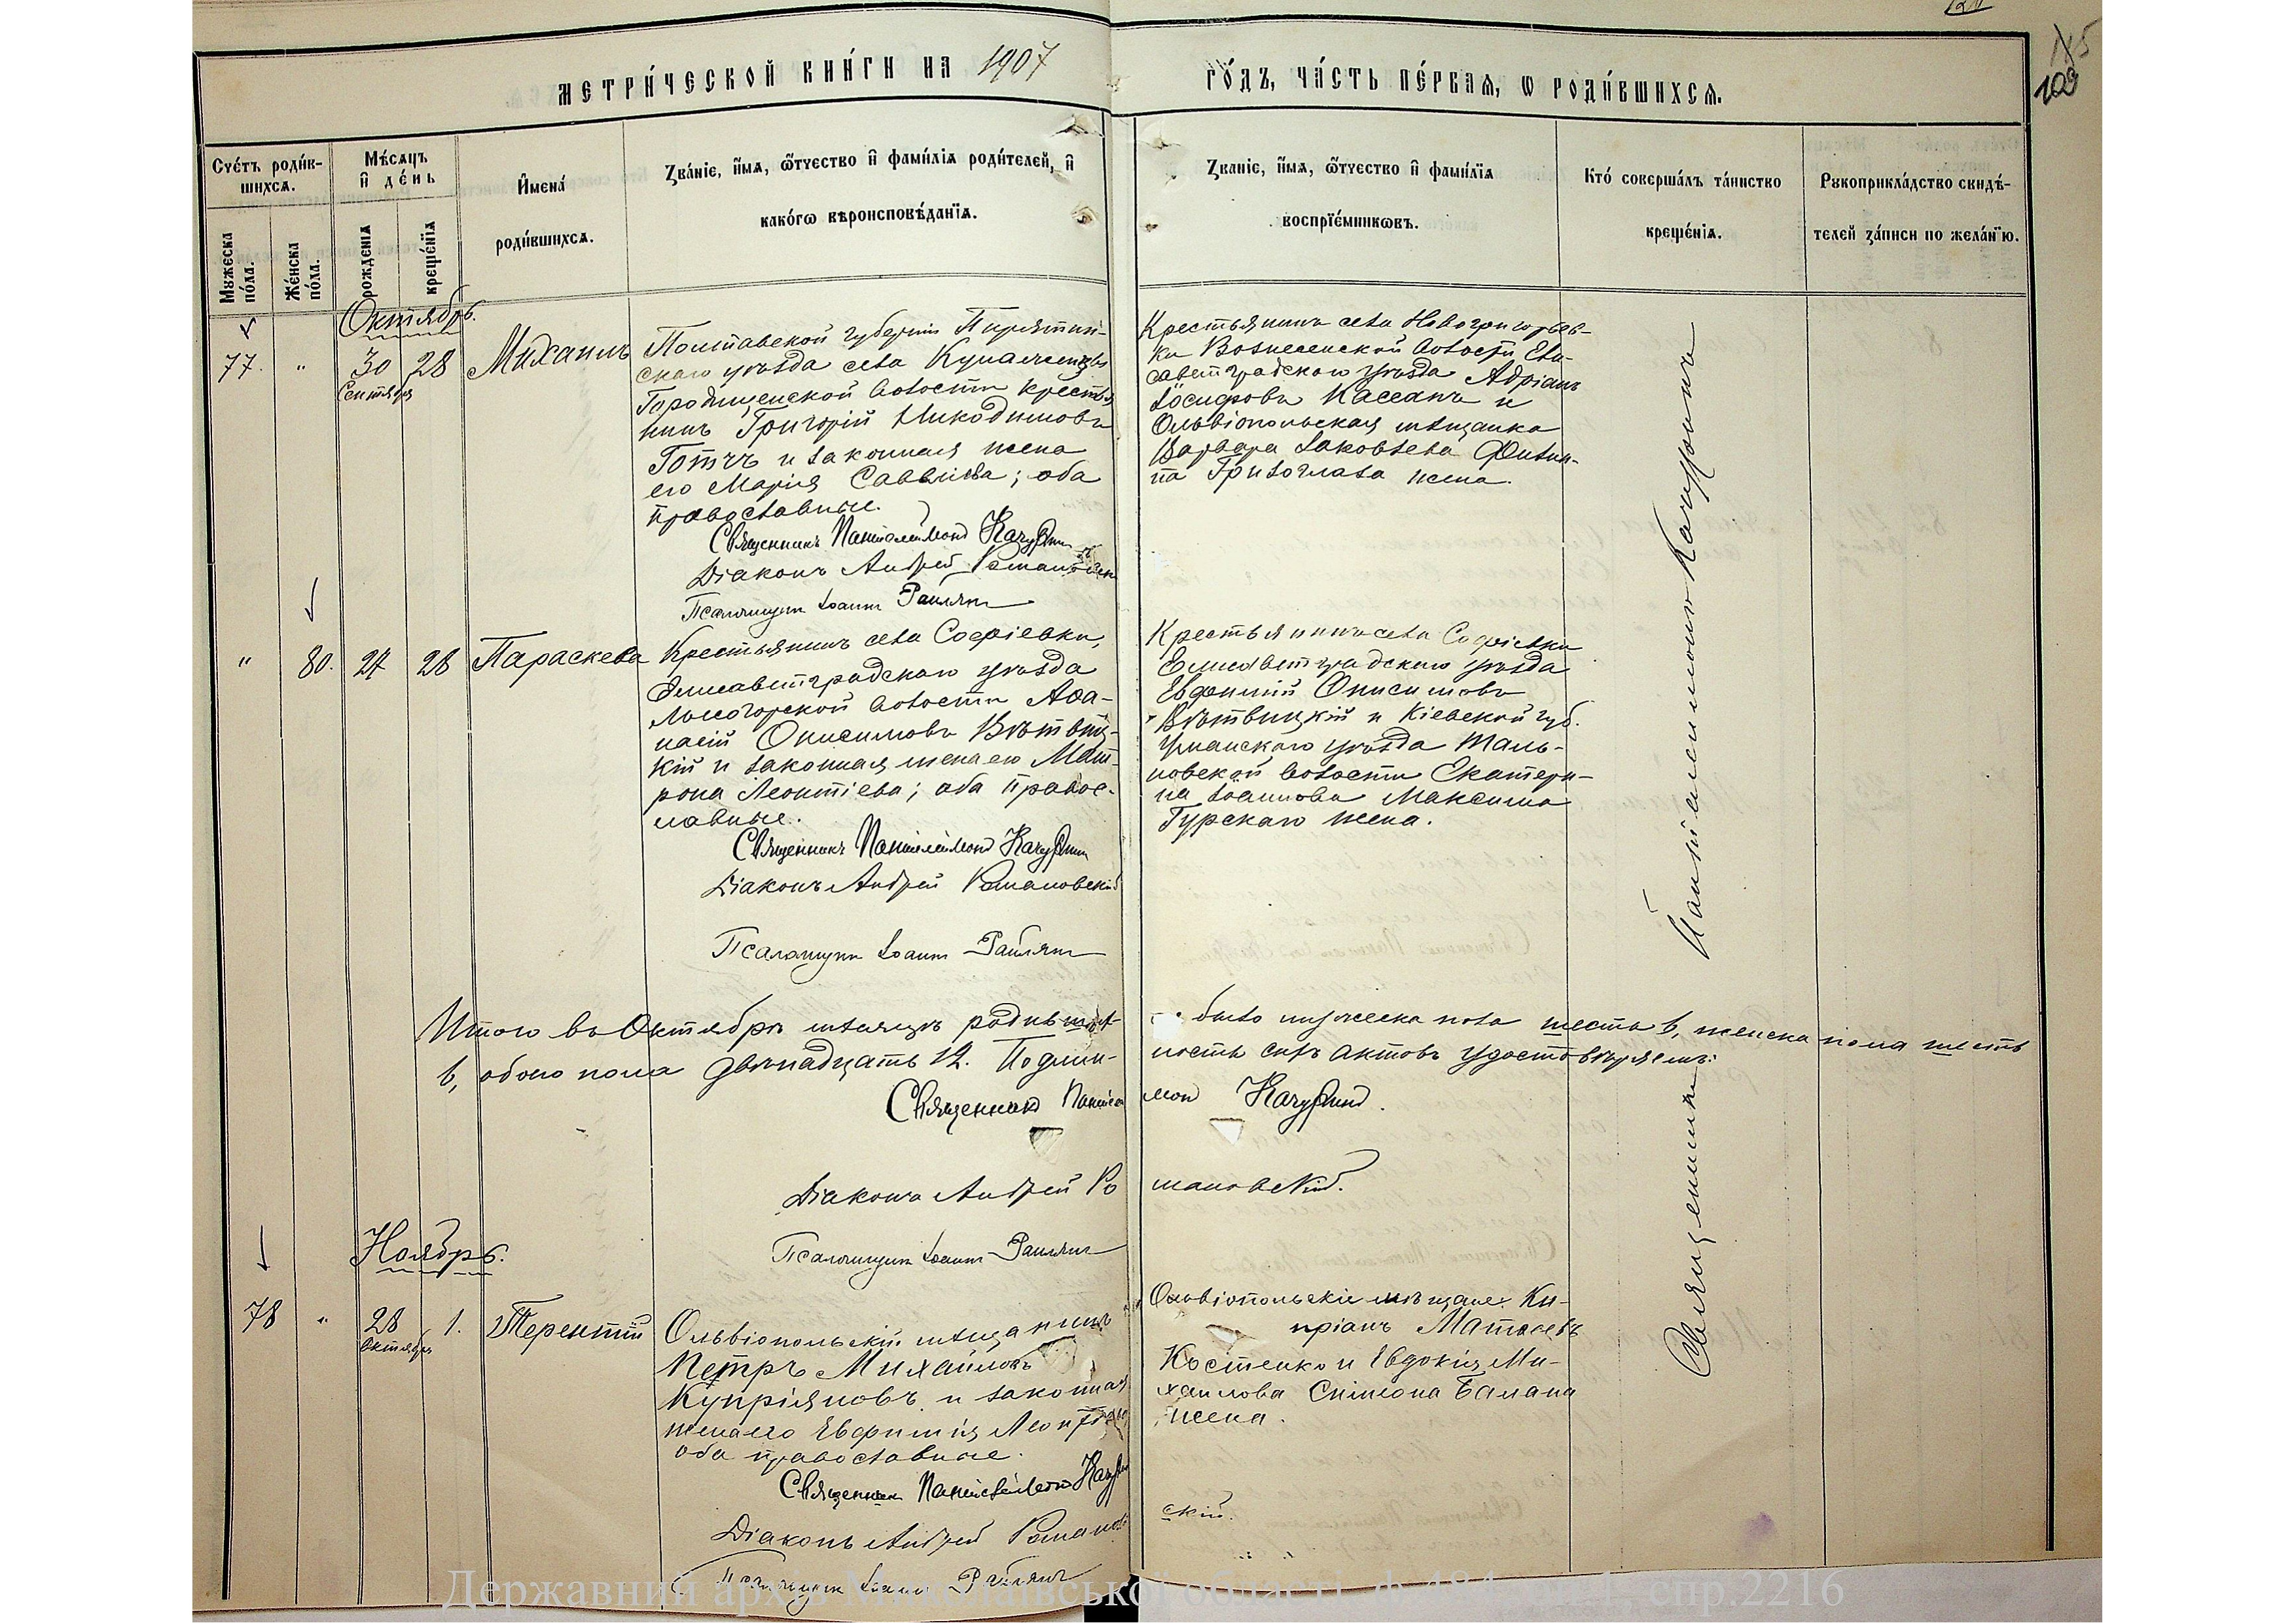 МЕТРИ́ЧЕСКОЙ КНИ́ГИ НА 1907 ГО́ДЪ, ЧА́СТЬ ПЕ́РВАѦ, Ѡ РОДИ́ВШИХСѦ.
115
109
Сче́тъ роди́в-
шихсѧ.
Мꙋ́жеска по́ла.
Же́нска по́ла.
Мѣ́сѧцъ и҆ де́нь
рожденїѧ
креще́нїѧ
И҆мена́
роди́вшихсѧ.
Зва́нїе, и҆́мѧ, ѻ҆́тчество и҆ фами́лїѧ роди́телей, и҆
како́гѡ вѣроисповѣ́данїѧ.
Зва́нїе, и҆́мѧ, ѻ҆́тчество и҆ фами́лїѧ
воспрїе́мникѡвъ.
Кто́ соверша́лъ та́инство
креще́нїѧ.
Рꙋкоприкла́дство свидѣ́-
телей за́писи по жела́нїю.
Октябрь.
77. " 30 Сентября 28 Михаилъ
Полтавской губерніи Пирятин-
скаго уѣзда села
Городищенской волости крестья
нинъ Григорій Никодимовъ
и законная жена
его Марія Саввиева; оба
православные.
Священникъ Пантелеимонъ
Діаконъ Андрей Романовскій
Псаломщикъ Іоаннъ
Крестьянинъ села Новогригорьев-
ки Вознесенской волости Ели-
саветградскаго уѣзда Адріанъ
Іосифовъ Кассанъ и
Ольвіопольская мѣщанка
Варвара Іаковлева Филип-
па Гривоглаза жена.
" 80. 27 28 Параскева
Крестьянинъ села Софіевки,
Елисаветградскаго уѣзда
Лысогорской волости Аѳа-
насій Онисимовъ Вѣтвиц-
кій и законная жена его Мат-
рона Леонтіева; оба правос-
лавные.
Священникъ Пантелеимонъ
Діаконъ Андрей Романовскій
Псаломщикъ Іоаннъ
Крестьянинъ села Софіевки
Елисаветградскаго уѣзда
Евфимій Онисимовъ
Вѣтвицкій и Кіевской губ.
Уманскаго уѣзда Таль-
новской волости Екатери-
на Іоаннова Максима
Гурскаго жена.
Итого въ Октябрѣ мѣсяцѣ родивших-
ся было мужеска пола шесть 6, женска пола шесть
6, обоего пола двѣнадцать 12. Подлин-
ность сихъ актовъ удостовѣряемъ:
Священникъ Пантелеимонъ
Діаконъ Андрей Романовскій.
Псаломщикъ Іоаннъ
Ноябрь.
78 " 28 Октября 1. Терентій
Ольвіопольскій мѣщанинъ
Петръ Михайловъ
Купріяновъ и законная
жена его Евфимія Леонтіева
оба православные.
Священникъ Пантелеимонъ
Діаконъ Андрей Романовскій.
Псаломщикъ Іоаннъ
Ольвіопольскіе мѣщане: Ки-
пріанъ Матѳеевъ
Костенко и Евдокія Ми-
хаилова Симеона Балана
жена.
Священникъ Пантелеимонъ
Державний архів Миколаївської області, ф.484, спр.2216